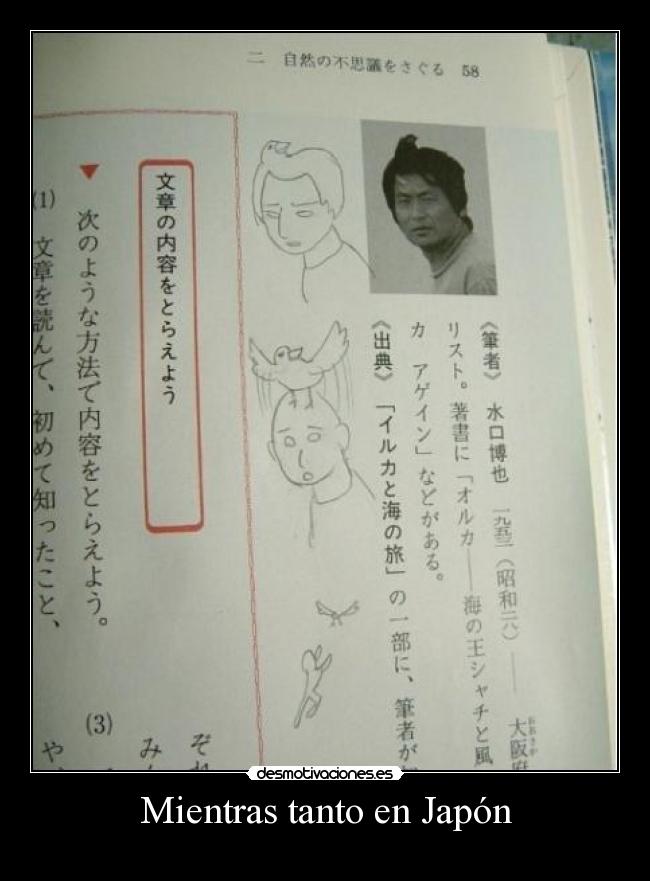 二 自然の不思議をさぐる 58
《筆者》 水口博也 一九五三(昭和二八)—— 大阪府
おおさか
リスト。著書に「オルカ——海の王シャチと風
カ アゲイン」などがある。
《出典》 「イルカと海の旅」の一部に、筆者が
文章の内容をとらえよう
▼ 次のような方法で内容をとらえよう。
(1) 文章を読んで、初めて知ったこと、
ぞれ
み
(3)
や、
desmotivaciones.es
Mientras tanto en Japón